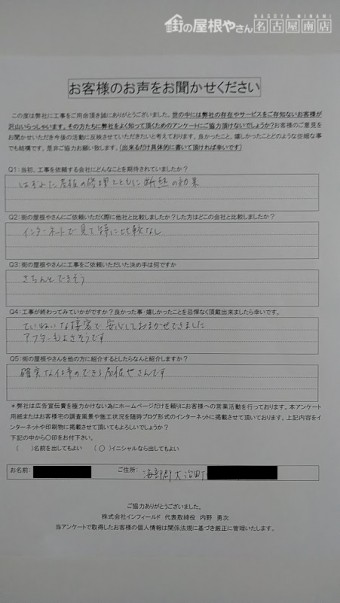 街の屋根やさん 名古屋南店
お客様のお声をお聞かせください
この度は弊社に工事をご用命頂き誠にありがとうございました。世の中には弊社の存在やサービスをご存知ないお客様が
沢山いらっしゃいます。その方たちに弊社をよく知って頂くためのアンケートにご協力頂けないでしょうか?お客様のご意見を
お聞かせいただき今後の活動に反映させていただきたいと考えております。良かったこと、嬉しかったことどのような些細な事
でも結構です。是非ご協力お願い致します。(出来るだけ具体的に書いて頂ければ幸いです)
Q1:当初、工事を依頼する会社にどんなことを期待されていましたか?
屋根の修理とともに断熱の効果
Q2:街の屋根やさんにご依頼いただく際に他社と比較しましたか?した方はどこの会社と比較しましたか?
インターネットで見て特に比較なし
Q3:街の屋根やさんにご依頼いただいた決め手は何ですか
きちんとできそう
Q4:工事が終わってみていかがですか?良かった事・嬉しかったことを忌憚なく頂戴出来ましたら幸いです。
ていねいな接客で安心しておまかせできました
アフターもよさそうです
Q5:街の屋根やさんを他の方に紹介するとしたらなんと紹介しますか?
確実な仕事のできる屋根やさんです
*弊社は広告宣伝費を極力かけない為にホームページだけを頼りにお客様への営業活動を行っております。本アンケート
用紙またはお客様宅の調査風景や施工状況を随時ブログ形式のインターネットに掲載させて頂いております。上記内容をイ
ンターネットや印刷物に掲載させて頂いてもよろしいでしょうか?
下記の中から〇印をお付下さい。
( )名前を出してもよい (〇)イニシャルなら出してもよい
お名前: ご住所: 海部郡大治町
ご協力ありがとうございました。
株式会社インフィールド 代表取締役 内野 勇次
当アンケートで取得したお客様の個人情報は関係法規に基づき厳正に管理いたします。